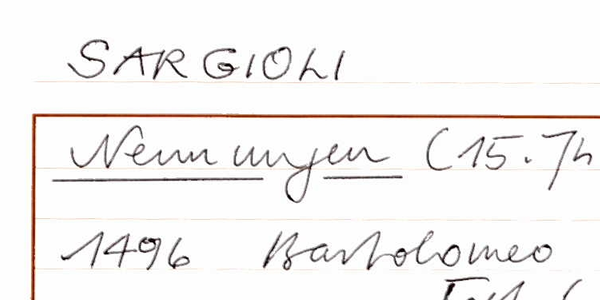 SARGIOLI
Nennungen (15. Jh
1496 Bartolomeo